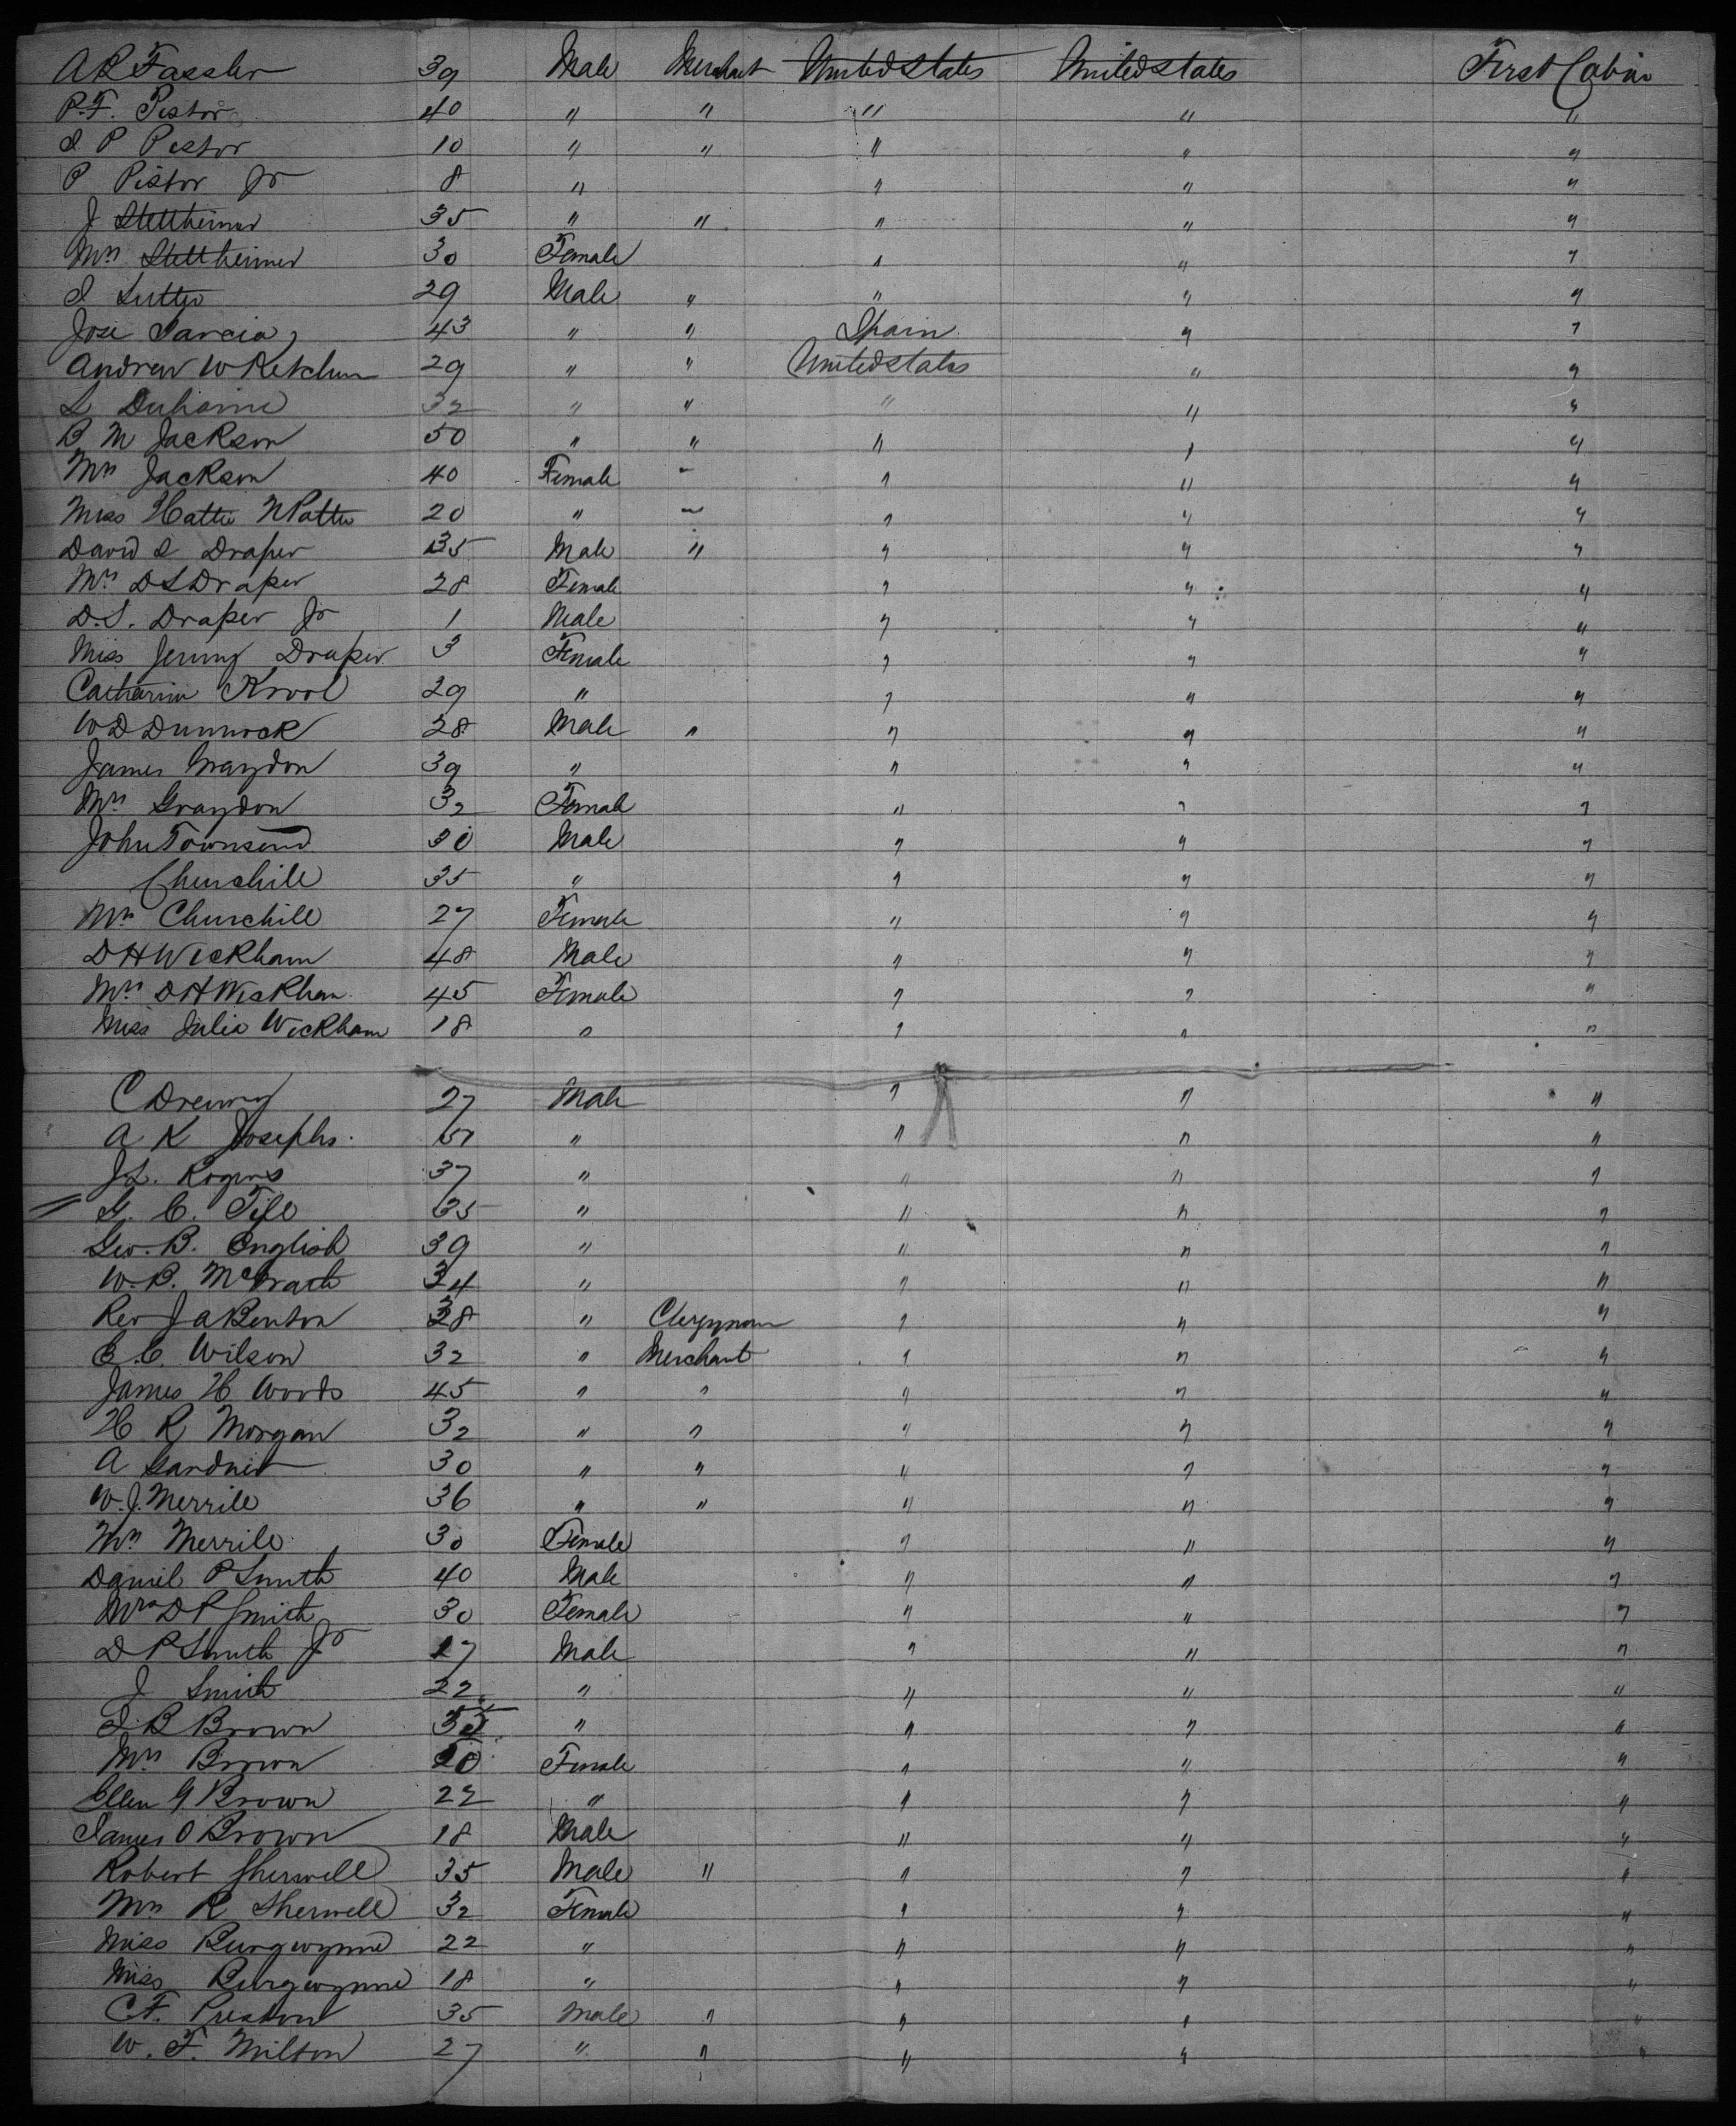 A R Fassler 39 Male Merchant United States United States First Cabin
P. F. Pistor 40 " " " " "
J P Pistor 10 " " " " "
P Pistor Jr 8 " " " "
J Stettheimer 35 " " " " "
Mrs Stettheimer 30 Female " " "
29 Male " " " "
Jose Garcia 43 " " Spain " "
Andrew W Ketchum 29 " " United States " "
L Duhaime 32 " " " " "
B M Jackson 50 " " " " "
Mrs Jackson 40 Female " " " "
Miss Hattie 20 " " " " "
David S Draper 35 Male " " " "
Mrs D S Draper 28 Female " " "
D. S. Draper Jr 1 Male " " "
Miss Jenny Draper 3 Female " " "
Catharine Krool 29 " " " "
W D Dunnock 28 Male " " " "
James Graydon 39 " " " "
Mrs Graydon 32 Female " " "
John Townsend 30 Male " " "
Churchill 35 " " " "
Mrs Churchill 27 Female " " "
D H Wickham 48 Male " " "
Mrs D H Wickham 45 Female " " "
Miss Julia Wickham 18 " " " "
C Drewry 27 Male " " "
A K Josephs. " " " "
J L. Rogers 37 " " " "
G. C. 35 " " " "
Geo. B. English 39 " " " "
W. B. McGrath 34 " " " "
Rev J A Benton 38 " Clergyman " " "
C. C. Wilson 32 " Merchant " " "
James H Woods 45 " " " " "
H R Morgan 32 " " " " "
A Gardner 30 " " " " "
W. J. Merrill 36 " " " " "
Mrs Merrill 30 Female " " "
Daniel P Smith 40 Male " " "
Mrs D P Smith 30 Female " " "
D P Smith Jr 17 Male " " "
J Smith 22 " " " "
J B Brown " " " "
Mrs Brown Female " " "
Ellen G Brown 22 " " " "
James O Brown 18 Male " " "
Robert Sherwell 35 Male " " " "
Mrs R Sherwell 32 Female " " "
Miss Burgwynne 22 " " " "
Miss Burgwynne 18 " " " "
C. F. Preston 35 Male " " " "
W. F. Milton 27 " " " " "